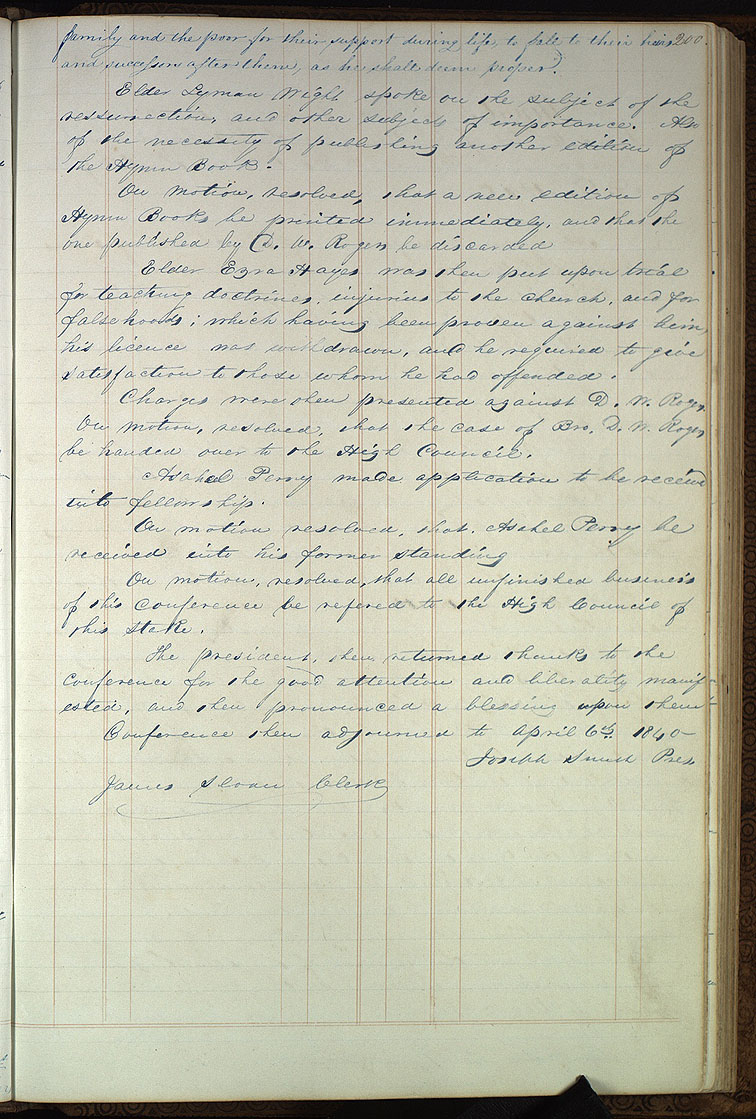 family and the poor for their support during life, to fale to their heirs 200.
and successors after them, as he shall deem proper.
Elder Lyman Wight spoke on the subject of the
ressurrection, and other subjects of importance. Also
of the necessity of publishing another edition of
the Hymn Book.
On motion, resolved, that a new edition of
Hymn Books be printed immediately, and that the
one published by D. W. Rogers be discarded
Elder Ezra Hayes was then put upon trial
for teaching doctrines, injurius to the church, and for
falsehoods; which having been proven against him,
his licence was withdrawn, and he required to give
satisfaction to those whom he had offended.
Charges were then presented against D. W. Rogers
On motion, resolved, that the case of Bro. D. W. Rogers
be handed over to the High Council.
Asahel Perry made application to be received
into fellowship.
On motion resolved, that, Asahel Perry be
received into his former standing
On motion, resolved, that all unfinished business
of this conference be refered to the High Council of
this stake.
The president, then returned thanks to the
conference for the good attention and liberality manif-
ested, and then pronounced a blessing upon them
Conference then adjourned to April 6th 1840-
Joseph Smith Pres
James Sloan Clerk